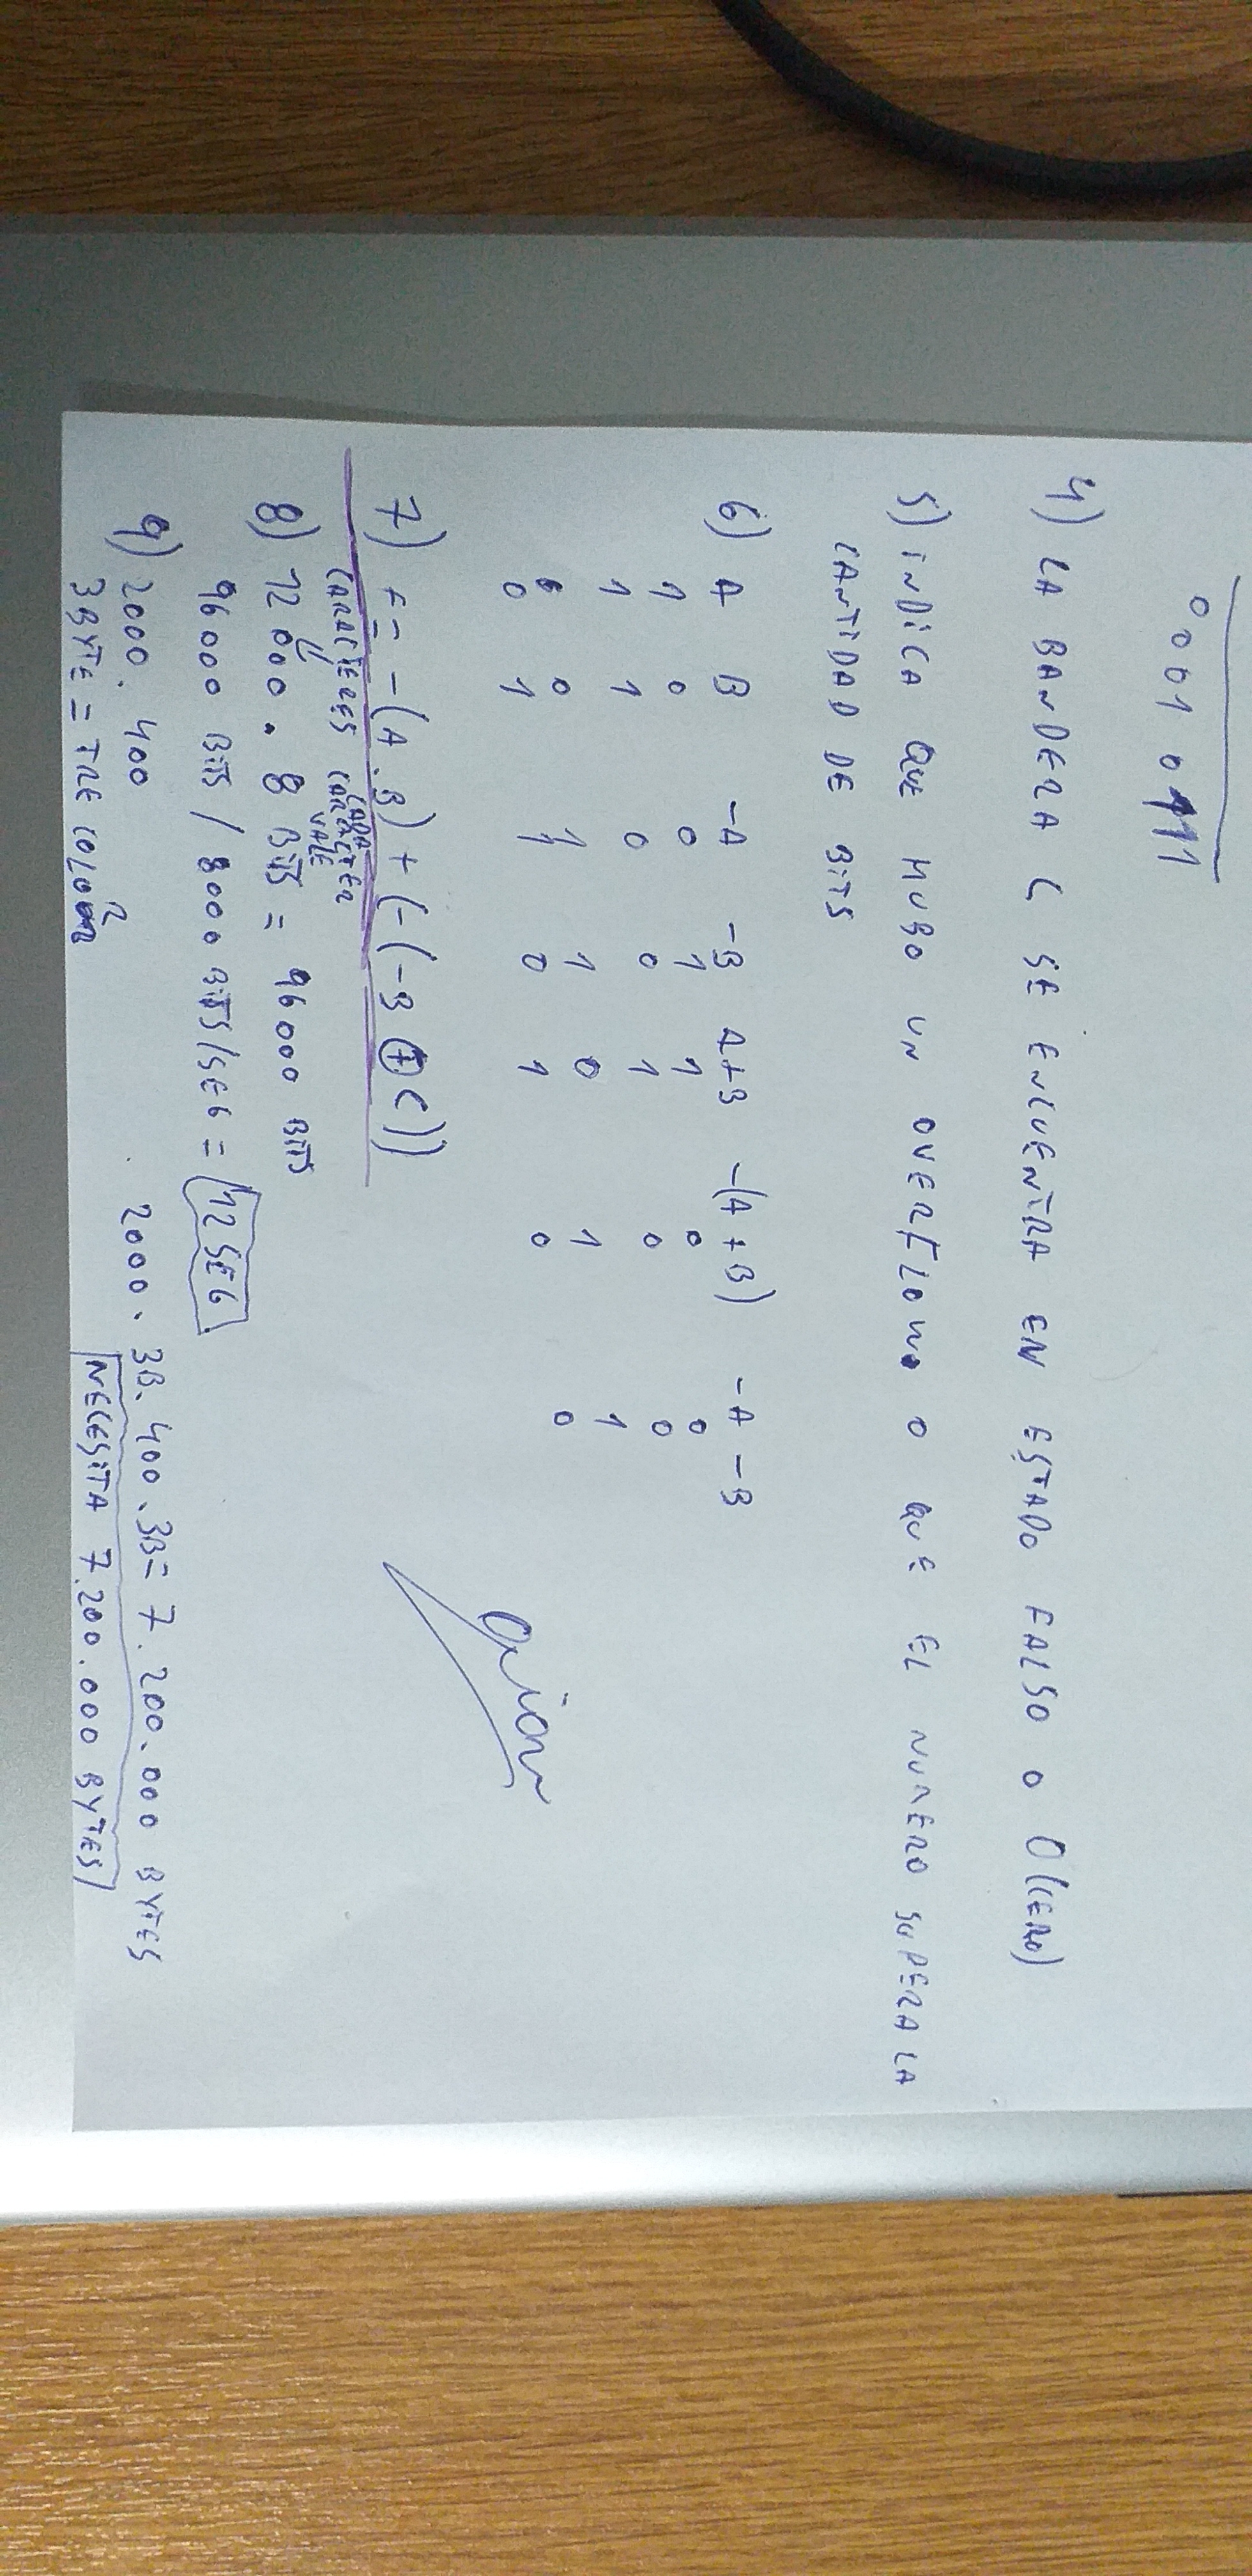 0001 0111
4) LA BANDERA C SE ENCUENTRA EN ESTADO FALSO O 0 (CERO)
5) INDICA QUE HUBO UN OVERFLOW O QUE EL NUMERO SUPERA LA
CANTIDAD DE BITS
6) A B -A -B A+B -(A + B) -A -B
1 0 0 1 1 0 0
1 1 0 0 1 0 0
0 0 1 1 0 1 1
0 1 1 0 1 0 0
7) F = -(A . B) + (-(-B ⊕ C))
CARACTERES CADA
CARACTER
VALE
8) 12000 . 8 BITS = 96000 BITS
96000 BITS / 8000 BITS/SEG = 12 SEG
9) 2000 . 400 2000 . 3B . 400 . 3B = 7.200.000 BYTES
3 BYTE = TRE COLOR NECESITA 7.200.000 BYTES